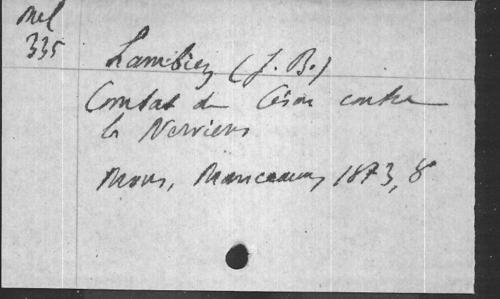 Mel
335
Lambiez (J. B.)
Combat de César contre
les Nerviens
Mons, Manceaux, 1873, 8